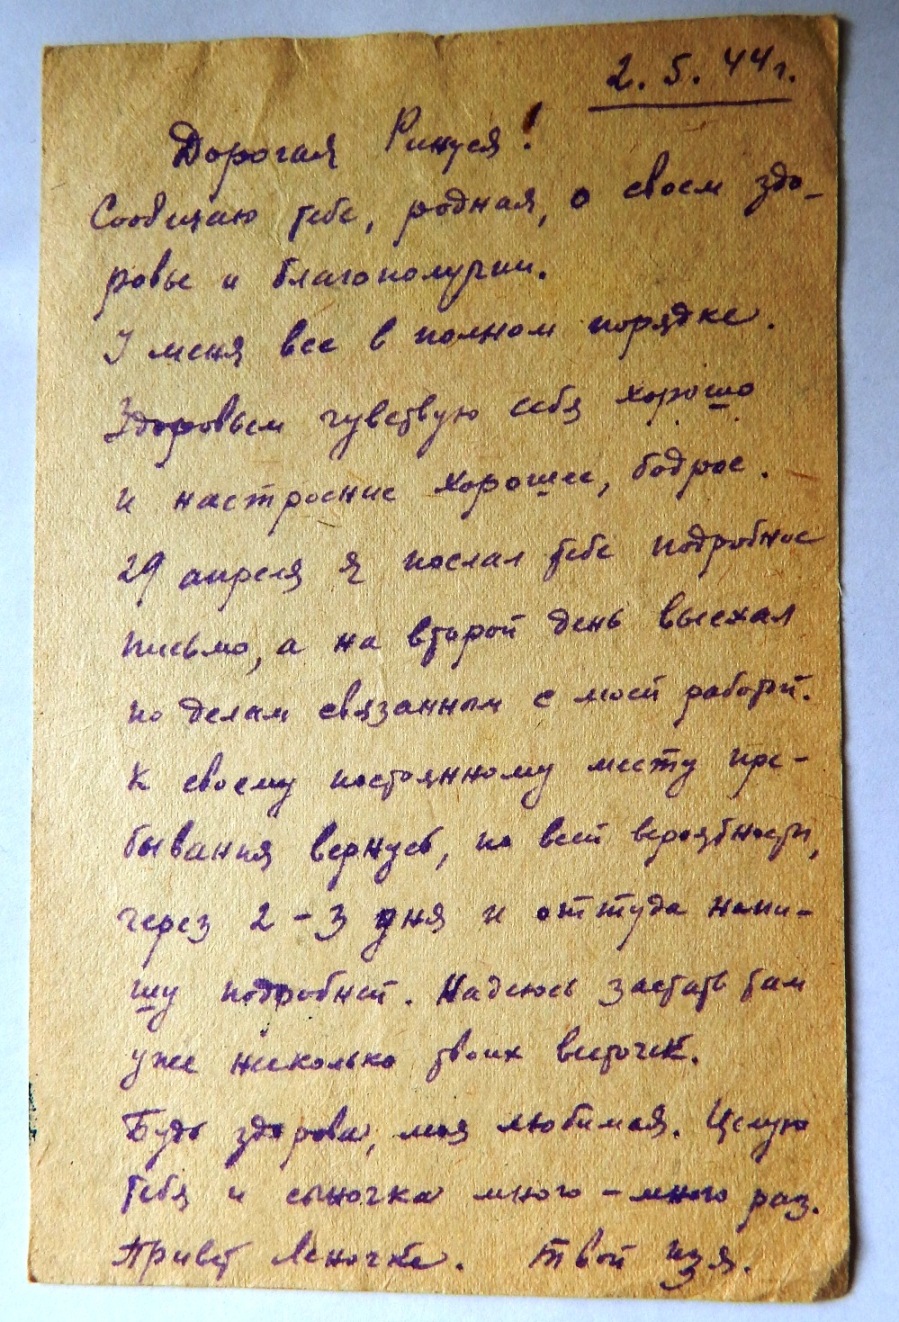 2.5.44г.
Дорогая Ринуся!
Сообщаю тебе, родная, о своем здо-
ровье и благополучии.
У меня все в полном порядке.
Здоровьем чувствую себя хорошо
и настроение хорошее, бодрое.
29 апреля я послал тебе подробное
письмо, а на второй день выехал
по делам связанным с моей работой.
К своему постоянному месту пре-
бывания вернусь, по всей вероятности,
через 2-3 дня и оттуда напи-
шу подробней. Надеюсь застать там
уже несколько твоих весточек.
Будь здорова, моя любимая. Целую
тебя и сыночка много-много раз.
Привет Леночке. Твой Изя.